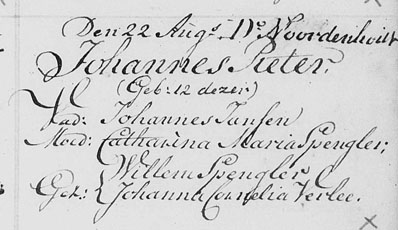 Den 22 Augs. Ds. Noordenhoilt
Johannes Pieter.
(Geb: 12 dezer)
Vad: Johannes Jansen
Moed: Catharina Maria Spengler;
Willem Spengler
Get: Johanna Cornelia Verlee.